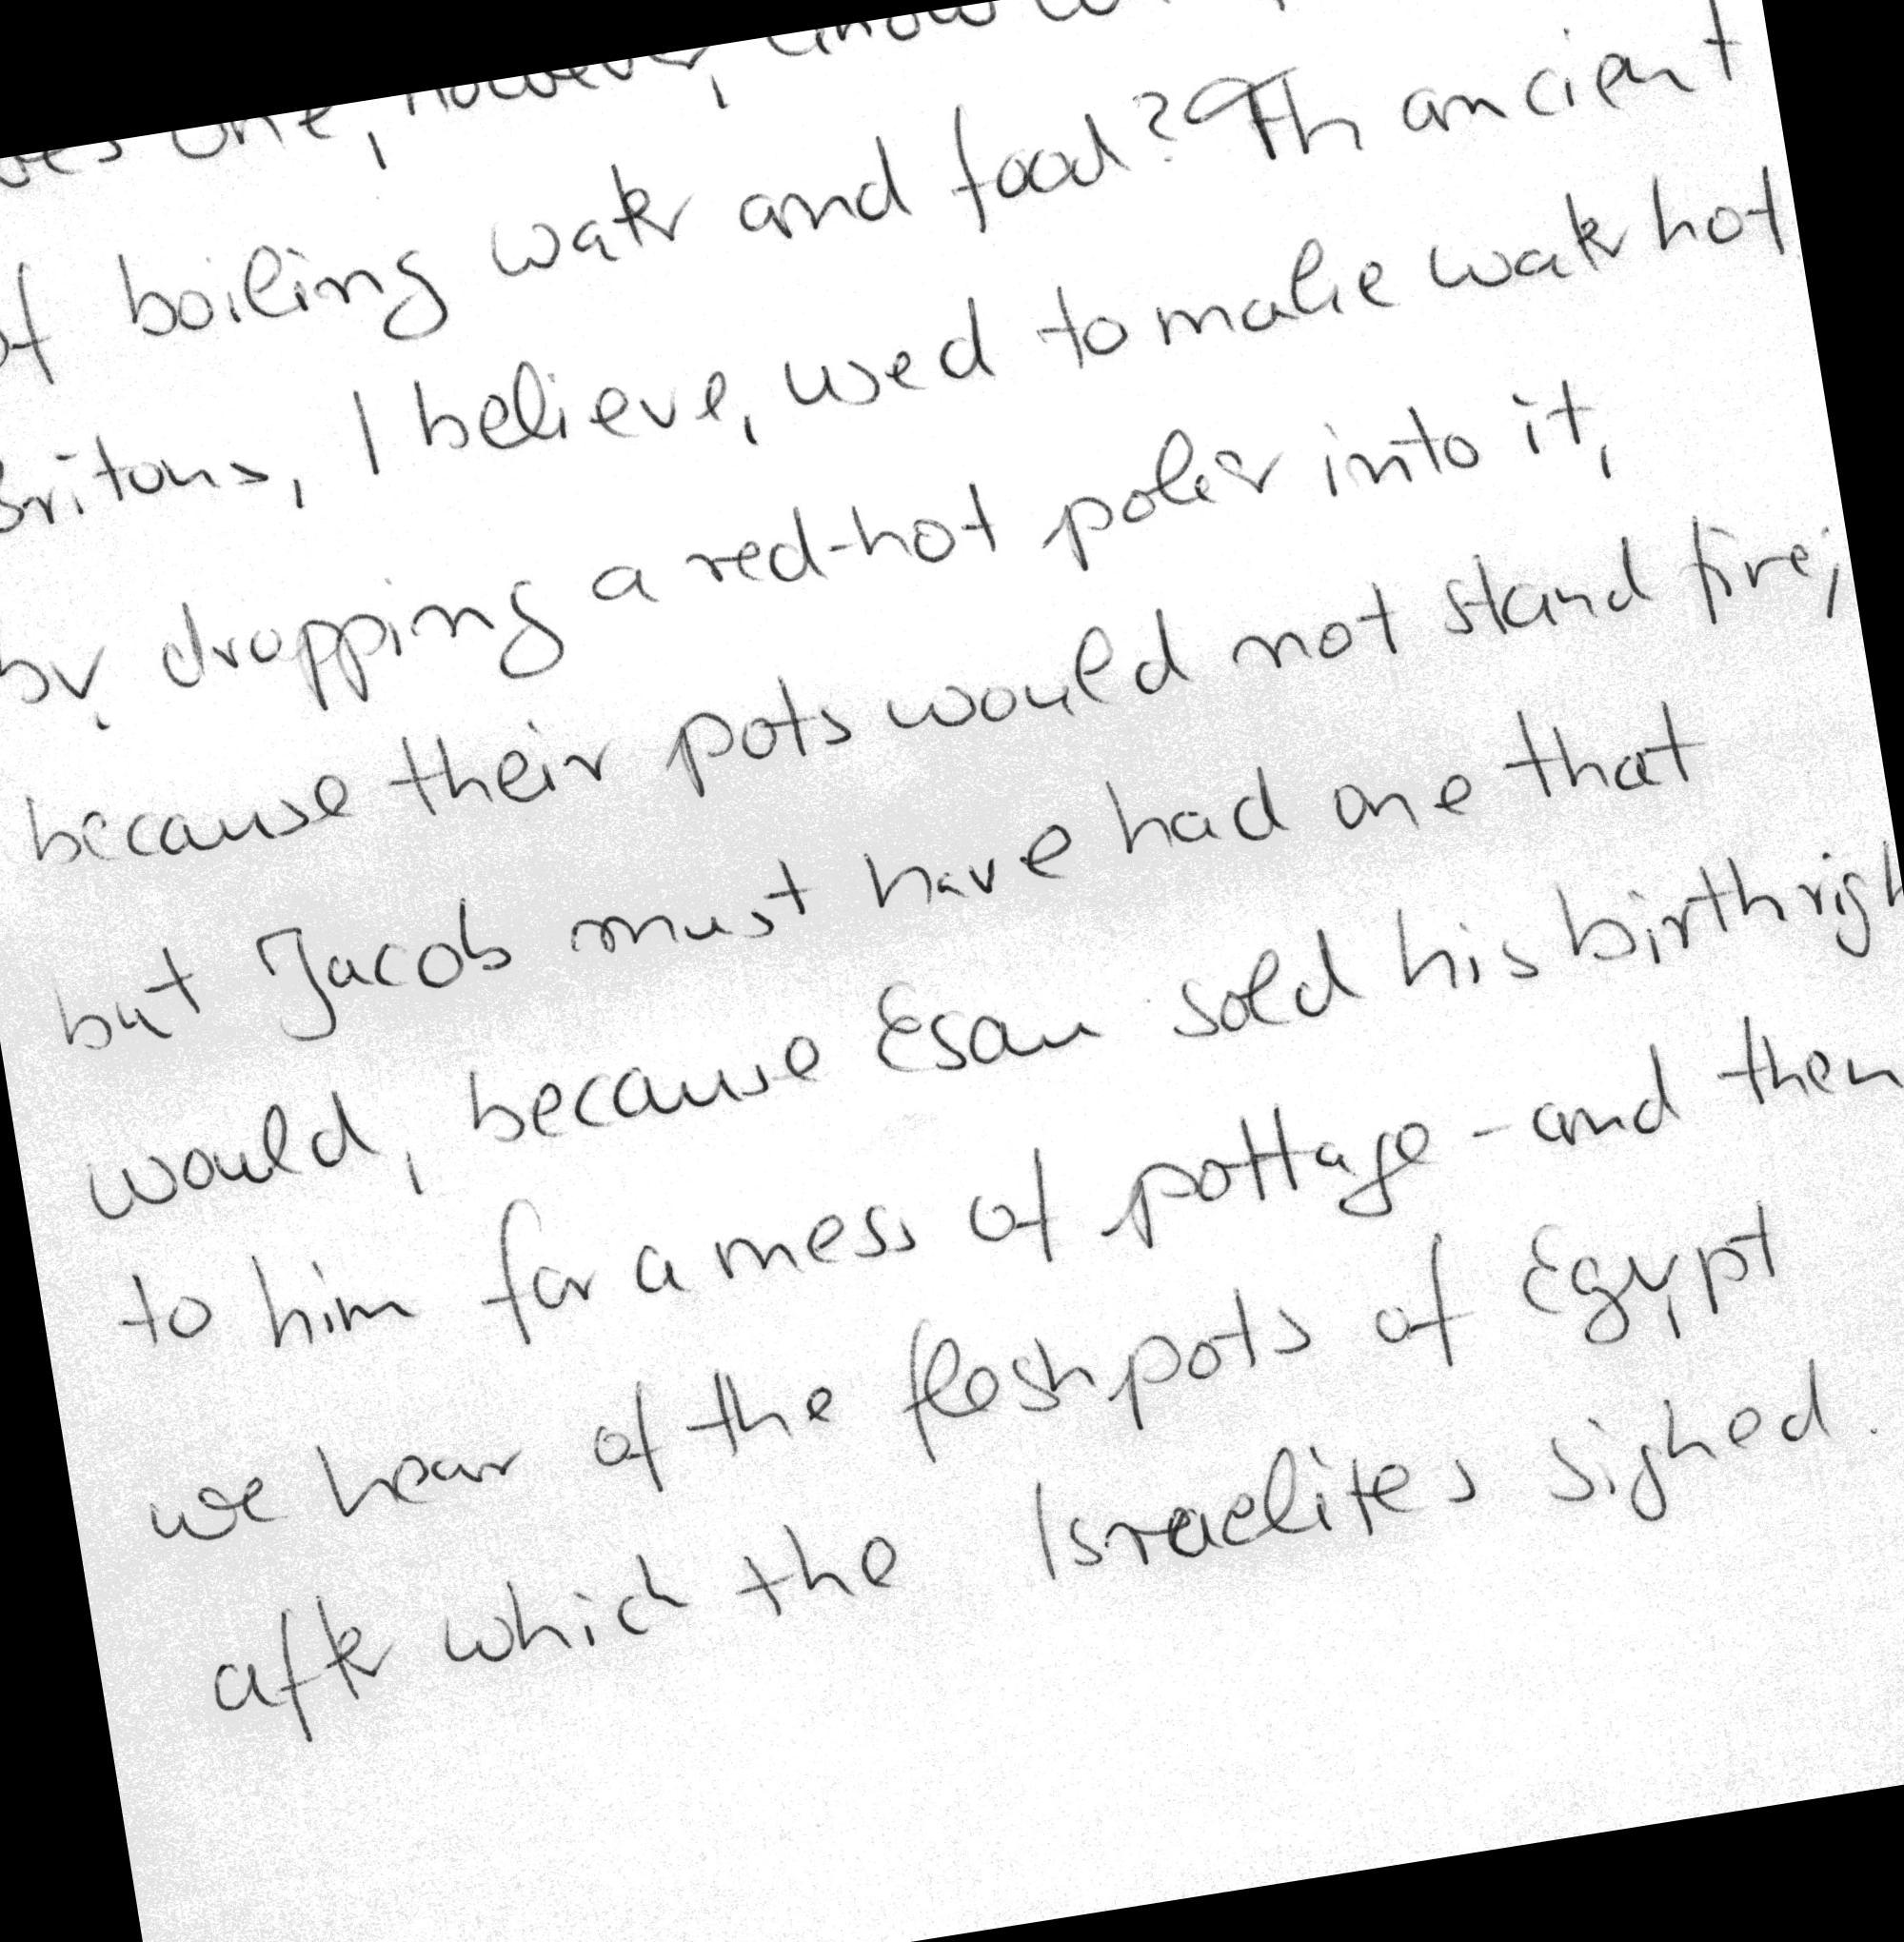 one, however, know
of boiling water and food? Th ancient
Britons, I believe, used to make water hot
by dropping a red-hot poker into it,
because their pots would not stand fire;
but Jacob must have had one that
would, because Esau sold his birthright
to him for a mess of pottage - and then
we hear of the fleshpots of Egypt
after which the Israelites sighed.